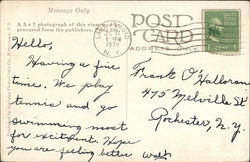 Message Only
A 5 x 7 photograph of this view may be
procured from the publishers.
POST
CARD
ADDRESS ONLY
1938
Hello,
Having a fine
time. We play
tennis and go
swimming most
for excitement. Hope
you are feeling better
Walt
Frank O'Halloran
475 Melville St.
Rochester, N.Y.